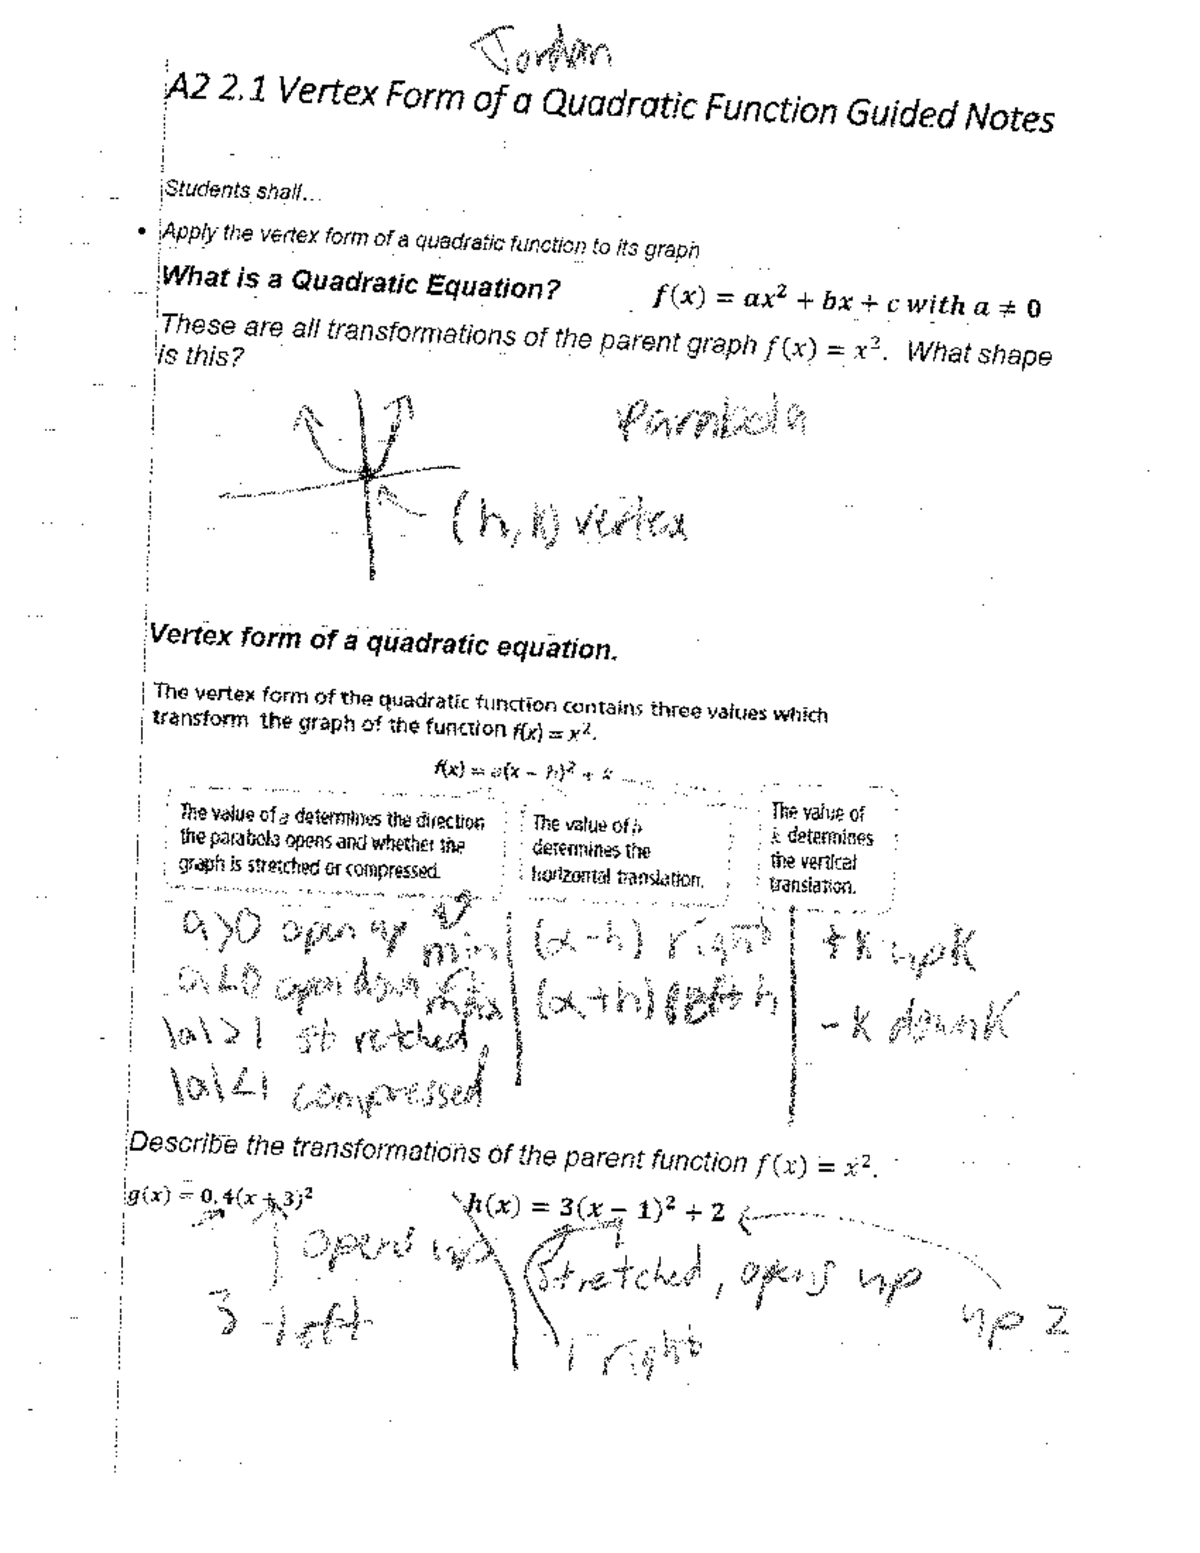 Jordan
A2 2.1 Vertex Form of a Quadratic Function Guided Notes
Students shall...
• Apply the vertex form of a quadratic function to its graph
What is a Quadratic Equation? f(x) = ax² + bx + c with a ≠ 0
These are all transformations of the parent graph f(x) = x². What shape
is this?
Parabola
(h,k) vertex
Vertex form of a quadratic equation.
The vertex form of the quadratic function contains three values which
transform the graph of the function f(x) = x².
f(x) = a(x – h)² + k
The value of a determines the direction
the parabola opens and whether the
graph is stretched or compressed.
The value of h
determines the
horizontal translation.
The value of
k determines
the vertical
translation.
a>0 open up min
a<0 open down max
|a|>1 stretched
|a|<1 compressed
(x-h) right
(x+h) left h
+k up k
-k down k
Describe the transformations of the parent function f(x) = x².
g(x) = 0.4(x + 3)²
opens up
3 left
h(x) = 3(x – 1)² + 2
stretched, opens up
up 2
1 right